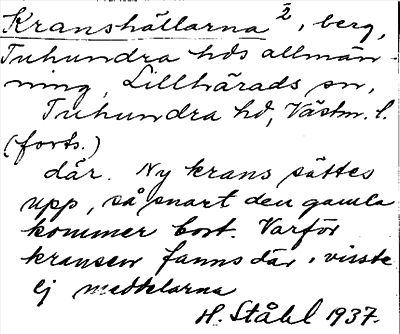 Kranshällarna 2, berg,
Tuhundra hds allmän-
ning, Lillhärads sn,
Tuhundra hd, Västm. l.
(forts.)
där. Ny krans sättes
upp, så snart den gamla
kommer bort. Varför
kransen fanns där, visste
ej meddelarna
H. Ståhl 1937.